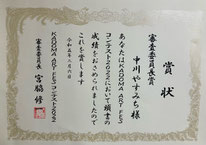 賞状
審査委員長賞
中川やすみち様
あなたはKADOMA ART FES
コンテスト2022において頭書の
成績をおさめられましたので
これを賞します
令和五年二月六日
KADOMA ART FESコンテスト2022
審査委員長 宮脇 修